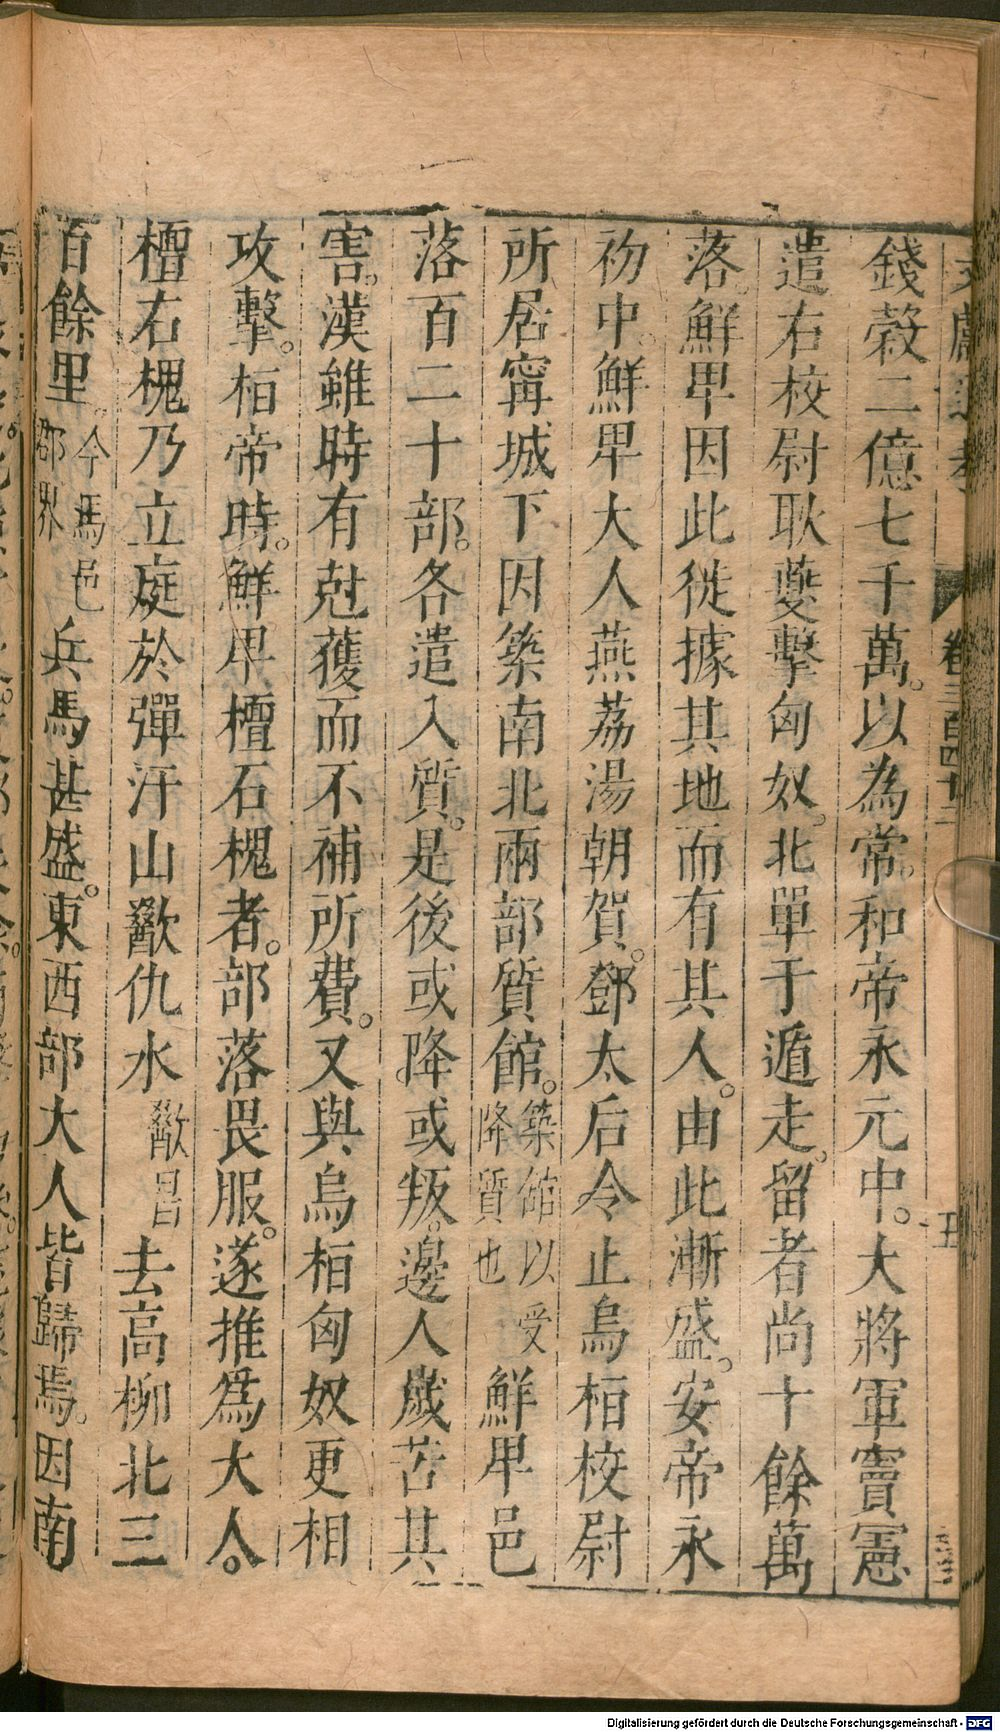 錢穀二億七千萬。以為常。和帝永元中。大將軍竇憲
遣右校尉耿夔擊匈奴。北單于遁走。留者尚十餘萬
落。鮮卑因此徙據其地而有其人。由此漸盛。安帝永
初中。鮮卑大人燕荔湯朝賀。鄧太后令止烏桓校尉
所居甯城下因築南北兩部質館。築館以受降質也鮮卑邑
落百二十部。各遣入質。是後或降。或叛。邊人歲苦其
害。漢雖時有尅獲而不補所費。又與烏桓匈奴更相
攻擊。桓帝時。鮮卑檀石槐者。部落畏服。遂推為大人。
檀右槐乃立庭於彈汗山歠仇水歠昌去高柳北三
百餘里。今馬邑郡界兵馬甚盛。東西部大人皆歸焉。因南
文獻通考 卷三百四十二
Digitalisierung gefördert durch die Deutsche Forschungsgemeinschaft - DFG